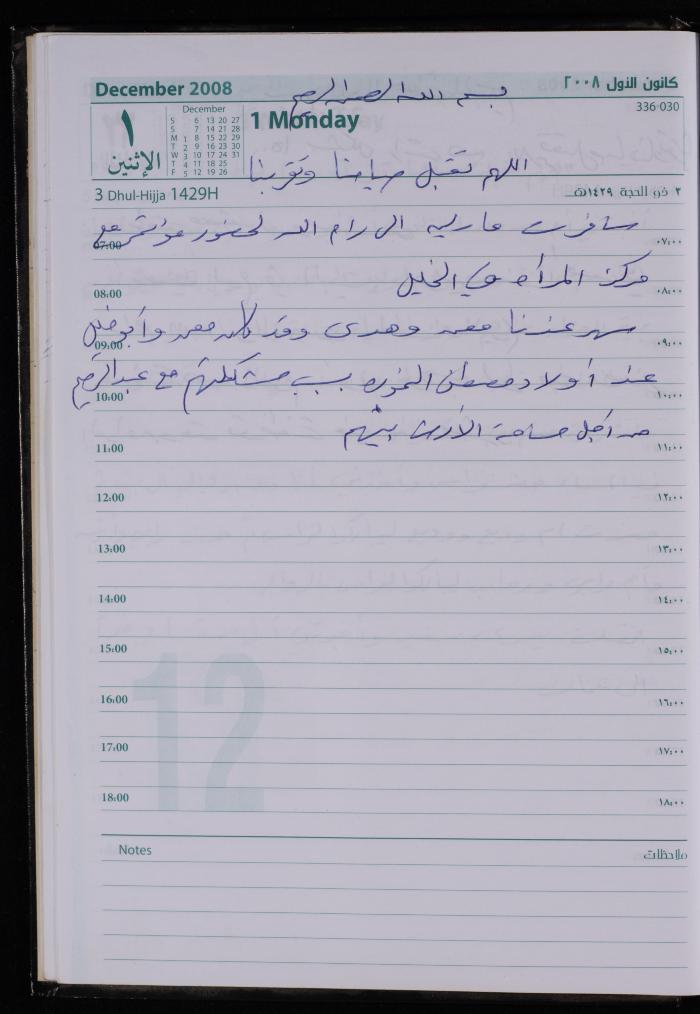 December 2008
كانون الأول ٢٠٠٨
بسم الله الرحمن الرحيم
336-030
December
S 6 13 20 27
S 7 14 21 28
M 1 8 15 22 29
T 2 9 16 23 30
W 3 10 17 24 31
T 4 11 18 25
F 5 12 19 26
١
الإثنين
1 Monday
اللهم تقبل صيامنا وقربنا
3 Dhul-Hijja 1429H
٣ ذو الحجة ١٤٢٩هـ
سافرت مارليه الى رام الله لحضور مؤتمر مع
07:00 ٠٧:٠٠
مركز المرأه في الخليل
08:00 ٠٨:٠٠
سهر عندنا محمد وهدى وقد كان محمد وأبو خليل
09:00 ٠٩:٠٠
عند أولاد مصطفى بسبب مشكلتهم مع عبد الرحيم
10:00 ١٠:٠٠
من أجل مساحة الأرض بينهم
11:00 ١١:٠٠
12:00 ١٢:٠٠
13:00 ١٣:٠٠
14:00 ١٤:٠٠
15:00 ١٥:٠٠
16:00 ١٦:٠٠
17:00 ١٧:٠٠
18:00 ١٨:٠٠
12
Notes ملاحظات